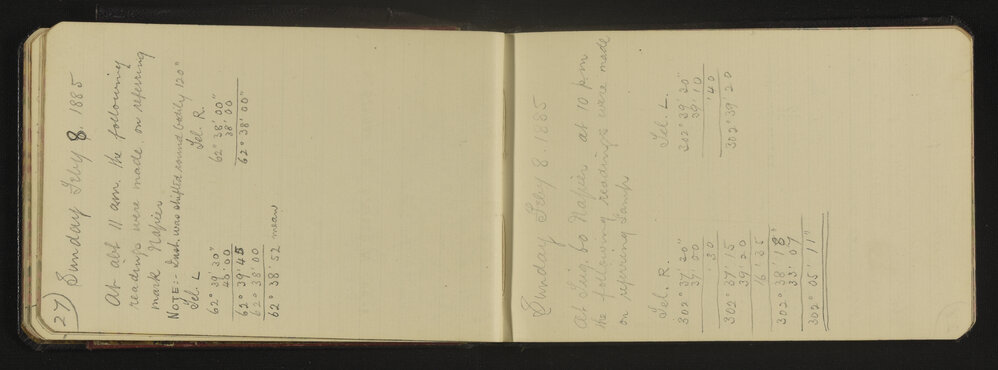 27)
Sunday Feby 8 1885
At abt 11 am. the following
readings were made on referring
mark Napier
NOTE:- Inst. was shifted round bodily 120"
Tel. L Tel. R.
62° 39' 30" 62° 38' 00"
40 00 38' 00
62° 39' 45 62° 38' 00"
62° 38' 00
62° 38' 52 mean
Sunday Feby 8. 1885
At Trig 60 Napier at 10 pm
the following readings were made
on referring Lamp
Tel. R. Tel. L.
302° 37' 20" 302° 39' 20"
37' 00 39' 10
30 '40
302° 37' 15 302° 39' 20
39' 20
16' 35
302° 38' 18"
33' 07
302° 05' 11"